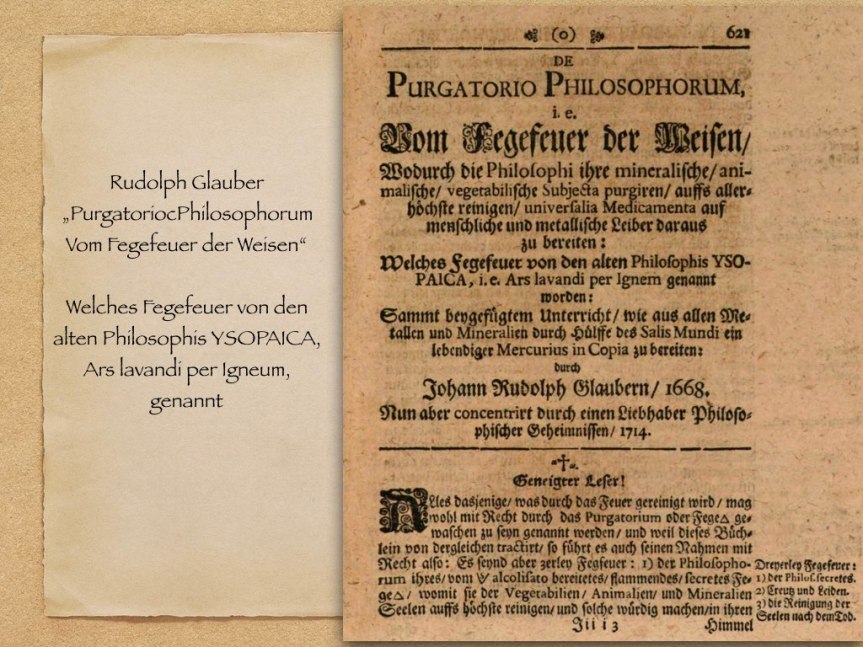 Rudolph Glauber
„PurgatoriocPhilosophorum
Vom Fegefeuer der Weisen“
Welches Fegefeuer von den
alten Philosophis YSOPAICA,
Ars lavandi per Igneum,
genannt
(o) 621
DE
PURGATORIO PHILOSOPHORUM,
i. e.
Vom Fegefeuer der Weisen/
Wodurch die Philosophi ihre mineralische/ ani-
malische/ vegetabilische Subjecta purgiren/ auffs aller-
höchste reinigen/ universalia Medicamenta auf
menschliche und metallische Leiber daraus
zu bereiten:
Welches Fegefeuer von den alten Philosophis YSO-
PAICA, i. e. Ars lavandi per Ignem genannt
worden:
Sammt beygefügtem Unterricht/ wie aus allen Me-
tallen und Mineralien durch Hülffe des Salis Mundi ein
lebendiger Mercurius in Copia zu bereiten:
durch
Johann Rudolph Glaubern/ 1668.
Nun aber concentrirt durch einen Liebhaber Philoso-
phischer Geheimnissen/ 1714.
Geneigter Leser!
ALles dasjenige/ was durch das Feuer gereinigt wird/ mag
wohl mit Recht durch das Purgatorium oder Fege△ ge-
waschen zu seyn genannt werden/ und weil dieses Büch-
lein von dergleichen tractirt/ so führt es auch seinen Nahmen mit
Recht also: Es seynd aber zerley Fegfeuer: 1) der Philosopho-
rum ihres/ vom alcolisato bereitetes/ flammendes/ secretes Fe-
ge△/ womit sie der Vegetabilien/ Animalien/ und Mineralien
Seelen auffs höchste reinigen/ und solche würdig machen/ in ihren
Dreyerley Fegefeuer:
1) der Philos. secretes.
2) Creutz und Leiden.
3) die Reinigung der
Seelen nach dem Tod.
Iii i 3 Himmel